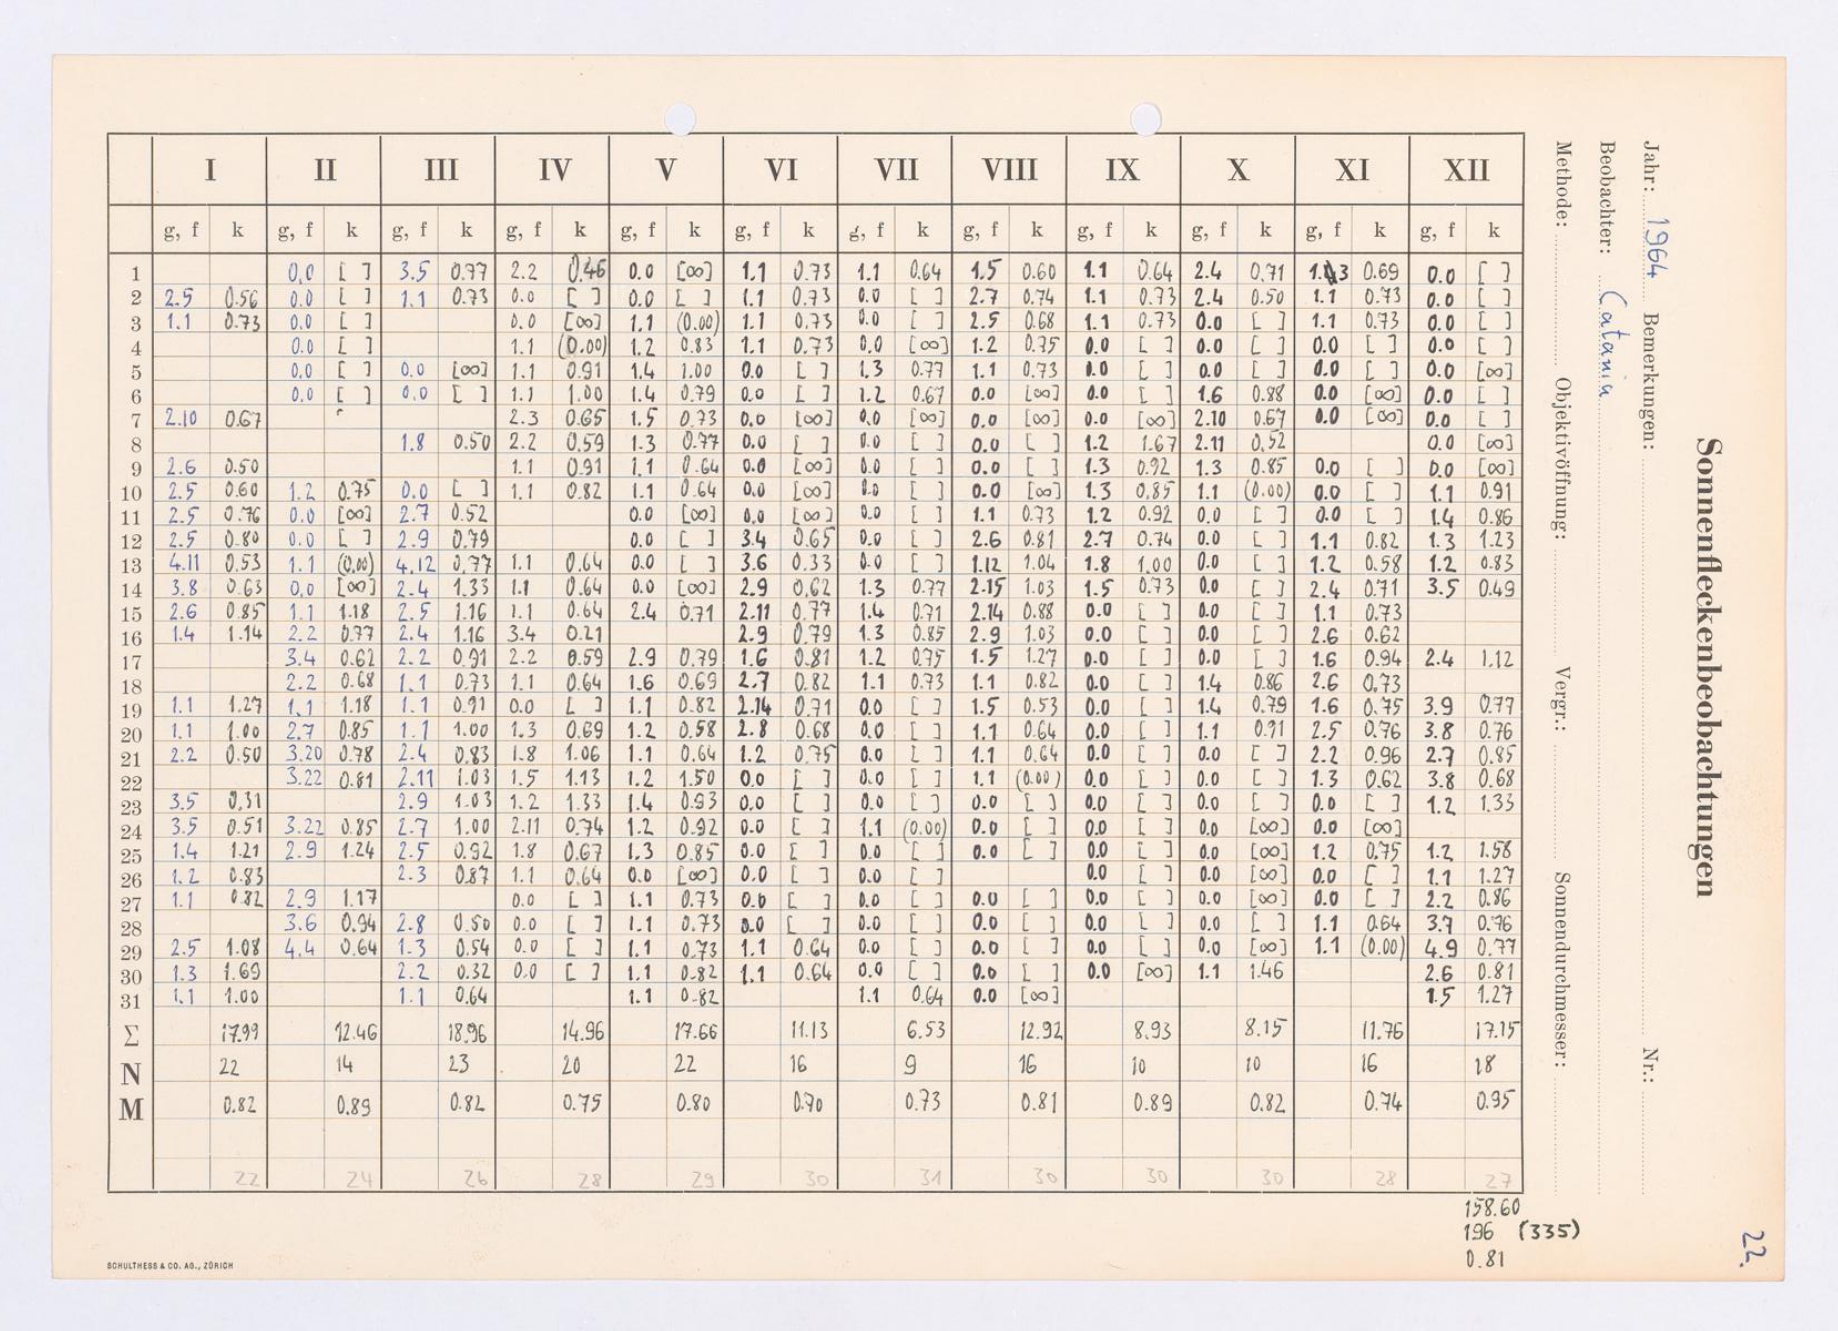 I II III IV V VI VII VIII IX X XI XII
g, f k g, f k g, f k g, f k g, f k g, f k g, f k g, f k g, f k g, f k g, f k g, f k
1 0.0 [ ] 3.5 0.77 2.2 0.46 0.0 [∞] 1.1 0.73 1.1 0.64 1.5 0.60 1.1 0.64 2.4 0.71 1.3 0.69 0.0 [ ]
2 2.5 0.56 0.0 [ ] 1.1 0.73 0.0 [ ] 0.0 [ ] 1.1 0.73 0.0 [ ] 2.7 0.74 1.1 0.73 2.4 0.50 1.1 0.73 0.0 [ ]
3 1.1 0.73 0.0 [ ] 0.0 [∞] 1.1 (0.00) 1.1 0.73 0.0 [ ] 2.5 0.68 1.1 0.73 0.0 [ ] 1.1 0.73 0.0 [ ]
4 0.0 [ ] 1.1 (0.00) 1.2 0.83 1.1 0.73 0.0 [∞] 1.2 0.75 0.0 [ ] 0.0 [ ] 0.0 [ ] 0.0 [ ]
5 0.0 [ ] 0.0 [∞] 1.1 0.91 1.4 1.00 0.0 [ ] 1.3 0.77 1.1 0.73 0.0 [ ] 0.0 [ ] 0.0 [ ] 0.0 [∞]
6 0.0 [ ] 0.0 [ ] 1.1 1.00 1.4 0.79 0.0 [ ] 1.2 0.67 0.0 [∞] 0.0 [ ] 1.6 0.88 0.0 [∞] 0.0 [ ]
7 2.10 0.67 2.3 0.65 1.5 0.73 0.0 [∞] 0.0 [∞] 0.0 [∞] 0.0 [∞] 2.10 0.67 0.0 [∞] 0.0 [ ]
8 1.8 0.50 2.2 0.59 1.3 0.77 0.0 [ ] 0.0 [ ] 0.0 [ ] 1.2 1.67 2.11 0.52 0.0 [∞]
9 2.6 0.50 1.1 0.91 1.1 0.64 0.0 [∞] 0.0 [ ] 0.0 [ ] 1.3 0.92 1.3 0.85 0.0 [ ] 0.0 [∞]
10 2.5 0.60 1.2 0.75 0.0 [ ] 1.1 0.82 1.1 0.64 0.0 [∞] 0.0 [ ] 0.0 [∞] 1.3 0.85 1.1 (0.00) 0.0 [ ] 1.1 0.91
11 2.5 0.76 0.0 [∞] 2.7 0.52 0.0 [∞] 0.0 [∞] 0.0 [ ] 1.1 0.73 1.2 0.92 0.0 [ ] 0.0 [ ] 1.4 0.86
12 2.5 0.80 0.0 [ ] 2.9 0.79 0.0 [ ] 3.4 0.65 0.0 [ ] 2.6 0.81 2.7 0.74 0.0 [ ] 1.1 0.82 1.3 1.23
13 4.11 0.53 1.1 (0.00) 4.12 0.77 1.1 0.64 0.0 [ ] 3.6 0.33 0.0 [ ] 1.12 1.04 1.8 1.00 0.0 [ ] 1.2 0.58 1.2 0.83
14 3.8 0.63 0.0 [∞] 2.4 1.33 1.1 0.64 0.0 [∞] 2.9 0.62 1.3 0.77 2.15 1.03 1.5 0.73 0.0 [ ] 2.4 0.71 3.5 0.49
15 2.6 0.85 1.1 1.18 2.5 1.16 1.1 0.64 2.4 0.71 2.11 0.77 1.4 0.71 2.14 0.88 0.0 [ ] 0.0 [ ] 1.1 0.73
16 1.4 1.14 2.2 0.77 2.4 1.16 3.4 0.21 2.9 0.79 1.3 0.85 2.9 1.03 0.0 [ ] 0.0 [ ] 2.6 0.62
17 3.4 0.62 2.2 0.91 2.2 0.59 2.9 0.79 1.6 0.81 1.2 0.75 1.5 1.27 0.0 [ ] 0.0 [ ] 1.6 0.94 2.4 1.12
18 2.2 0.68 1.1 0.73 1.1 0.64 1.6 0.69 2.7 0.82 1.1 0.73 1.1 0.82 0.0 [ ] 1.4 0.86 2.6 0.73
19 1.1 1.27 1.1 1.18 1.1 0.91 0.0 [ ] 1.1 0.82 2.14 0.71 0.0 [ ] 1.5 0.53 0.0 [ ] 1.4 0.79 1.6 0.75 3.9 0.77
20 1.1 1.00 2.7 0.85 1.1 1.00 1.3 0.69 1.2 0.58 2.8 0.68 0.0 [ ] 1.1 0.64 0.0 [ ] 1.1 0.91 2.5 0.76 3.8 0.76
21 2.2 0.50 3.20 0.78 2.4 0.83 1.8 1.06 1.1 0.64 1.2 0.75 0.0 [ ] 1.1 0.64 0.0 [ ] 0.0 [ ] 2.2 0.96 2.7 0.85
22 3.22 0.81 2.11 1.03 1.5 1.13 1.2 1.50 0.0 [ ] 0.0 [ ] 1.1 (0.00) 0.0 [ ] 0.0 [ ] 1.3 0.62 3.8 0.68
23 3.5 0.31 2.9 1.03 1.2 1.33 1.4 0.93 0.0 [ ] 0.0 [ ] 0.0 [ ] 0.0 [ ] 0.0 [ ] 0.0 [ ] 1.2 1.33
24 3.5 0.51 3.22 0.85 2.7 1.00 2.11 0.74 1.2 0.92 0.0 [ ] 1.1 (0.00) 0.0 [ ] 0.0 [ ] 0.0 [∞] 0.0 [∞]
25 1.4 1.21 2.9 1.24 2.5 0.92 1.8 0.67 1.3 0.85 0.0 [ ] 0.0 [ ] 0.0 [ ] 0.0 [ ] 0.0 [∞] 1.2 0.75 1.2 1.58
26 1.2 0.83 2.3 0.87 1.1 0.64 0.0 [∞] 0.0 [ ] 0.0 [ ] 0.0 [ ] 0.0 [∞] 0.0 [ ] 1.1 1.27
27 1.1 0.82 2.9 1.17 0.0 [ ] 1.1 0.73 0.0 [ ] 0.0 [ ] 0.0 [ ] 0.0 [ ] 0.0 [∞] 0.0 [ ] 2.2 0.86
28 3.6 0.94 2.8 0.50 0.0 [ ] 1.1 0.73 0.0 [ ] 0.0 [ ] 0.0 [ ] 0.0 [ ] 0.0 [ ] 1.1 0.64 3.7 0.76
29 2.5 1.08 4.4 0.64 1.3 0.54 0.0 [ ] 1.1 0.73 1.1 0.64 0.0 [ ] 0.0 [ ] 0.0 [ ] 0.0 [∞] 1.1 (0.00) 4.9 0.77
30 1.3 1.69 2.2 0.32 0.0 [ ] 1.1 0.82 1.1 0.64 0.0 [ ] 0.0 [ ] 0.0 [∞] 1.1 1.46 2.6 0.81
31 1.1 1.00 1.1 0.64 1.1 0.82 1.1 0.64 0.0 [∞] 1.5 1.27
Σ 17.99 12.46 18.96 14.96 17.66 11.13 6.53 12.92 8.93 8.15 11.76 17.15
N 22 14 23 20 22 16 9 16 10 10 16 18
M 0.82 0.89 0.82 0.75 0.80 0.70 0.73 0.81 0.89 0.82 0.74 0.95
22 24 26 28 29 30 31 30 30 30 28 27
158.60
196 (335)
0.81
SCHULTHESS & CO. AG., ZÜRICH
Sonnenfleckenbeobachtungen
Jahr: 1964 Bemerkungen: Nr.:
Beobachter: Catania
Methode: Objektivöffnung: Vergr.: Sonnendurchmesser:
22.